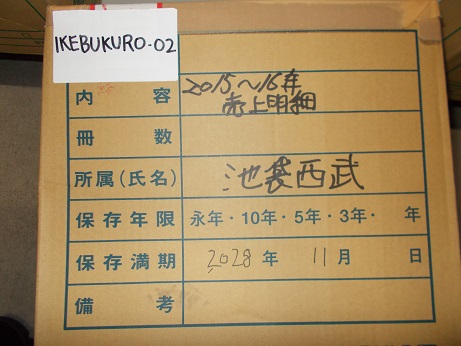 IKEBUKURO-02
内 容 2015～16年
売上明細
冊 数
所属(氏名) 池袋西武
保存年限 永年・10年・5年・3年・ 年
保存満期 2028年 11月 日
備 考